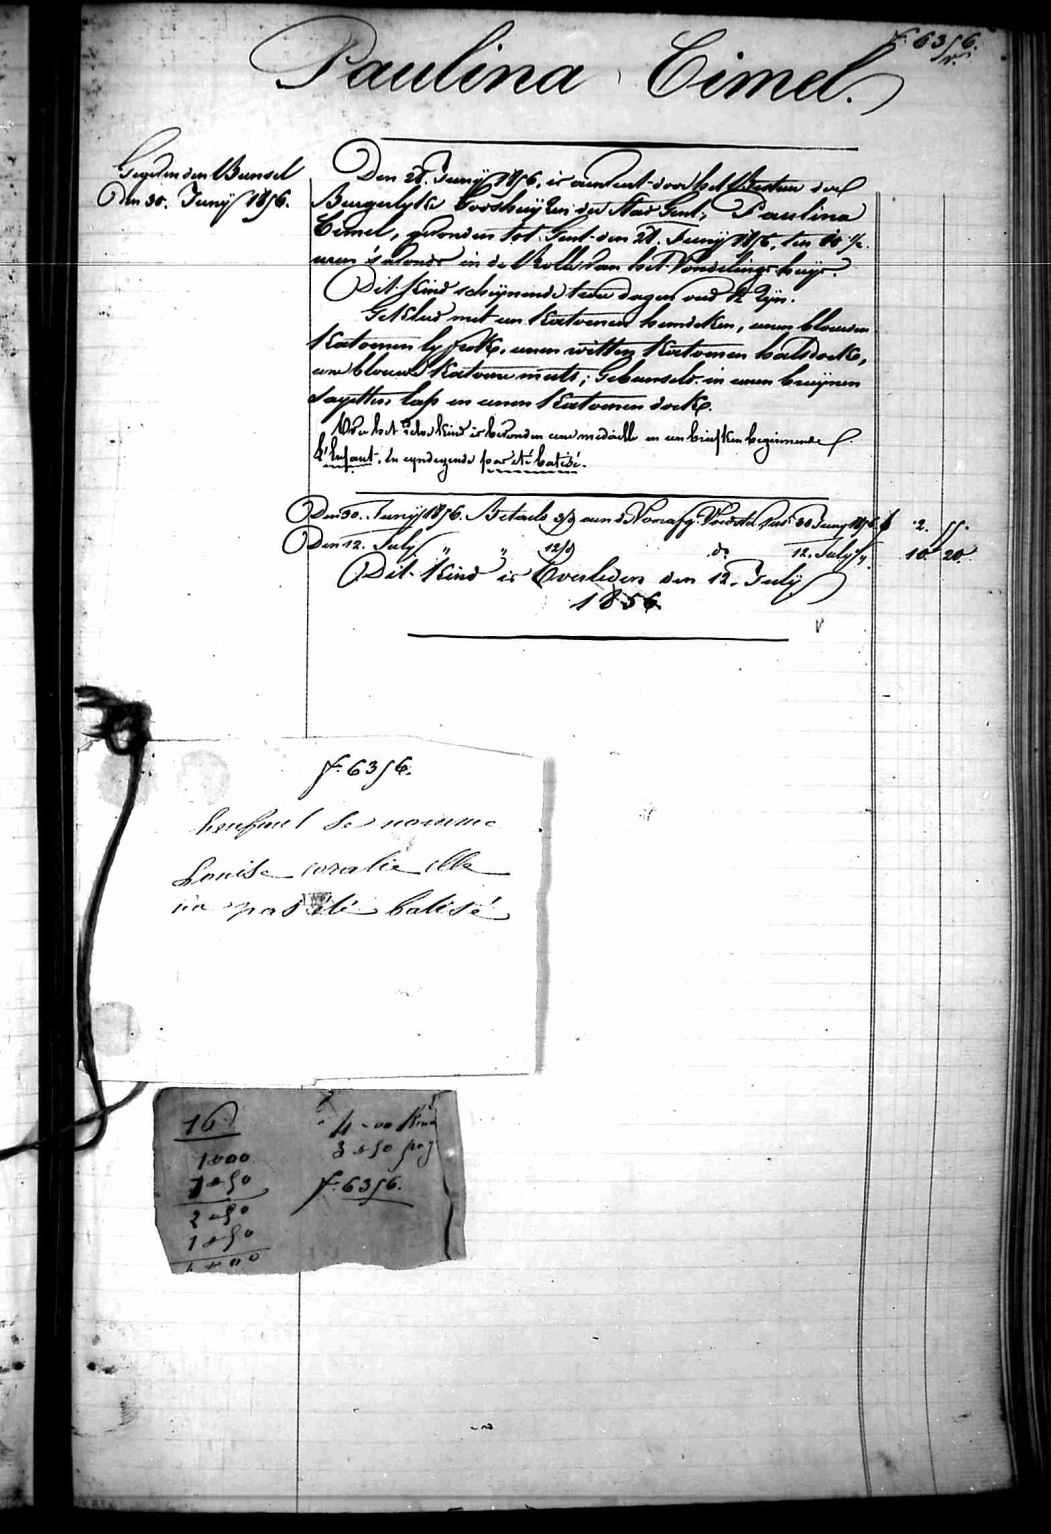 f. 6356.
Paulina Cimel.
Gegeven den Bunsel
Den 30. Junij 1856.
Den 28. Junij 1856, is aenveert door het Bestuer der
Burgerlyke Godshuyzen der Stad Gent, Paulina
Cimel, gevonden tot Gent den 28. Junij 1856, ten 10 ½
uren 's avonds in de Rolle van het Vondelingshuys
Dit Kind schynende twee dagen oud te zyn.
Gekleed met een Katoenen hemdeken, eenen blauwen
Katoenen lyfrok, eenen witten Katoenen halsdoek,
eene blauwe Katoene muts, Gebunseld in eenen bruynen
sayetten lap en eenen Katoenen doek.
Voor het zelve kind is bevonden eene medaelle en een briefken beginnende
L'enfant, en eyndigende pas été batisé.
Den 30. Junij 1856. Betaeld 3/d aen d'Voorzorg. Voedster sed. 30 Junij 1856. f 2. 55.
Den 12. July " " 12/d do 12. July " 10. 20.
Dit Kind is Overleden den 12. July
1856
f. 6356.
lenfant se nomme
Louise coralie elle
na pas été batisé
16
1 = 00
1 = 50
2 = 50
1 = 50
4 = 00
4 = 00 Kind
3 = 50
f. 6356.